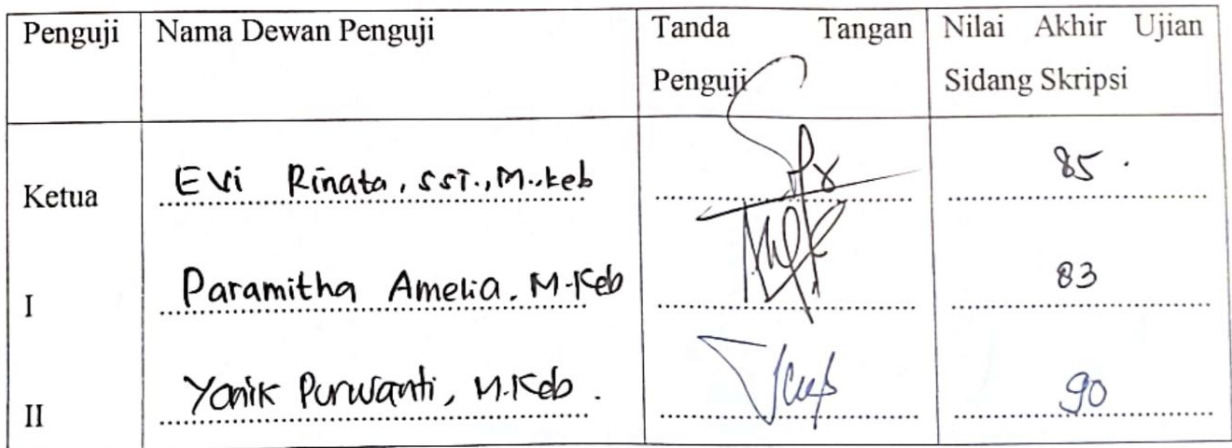 Penguji Nama Dewan Penguji Tanda Tangan Nilai Akhir Ujian
Penguji Sidang Skripsi
Ketua Evi Rinata, SST., M.keb 85.
I Paramitha Amelia, M.Keb 83
II Yanik Purwanti, M.Keb. 90